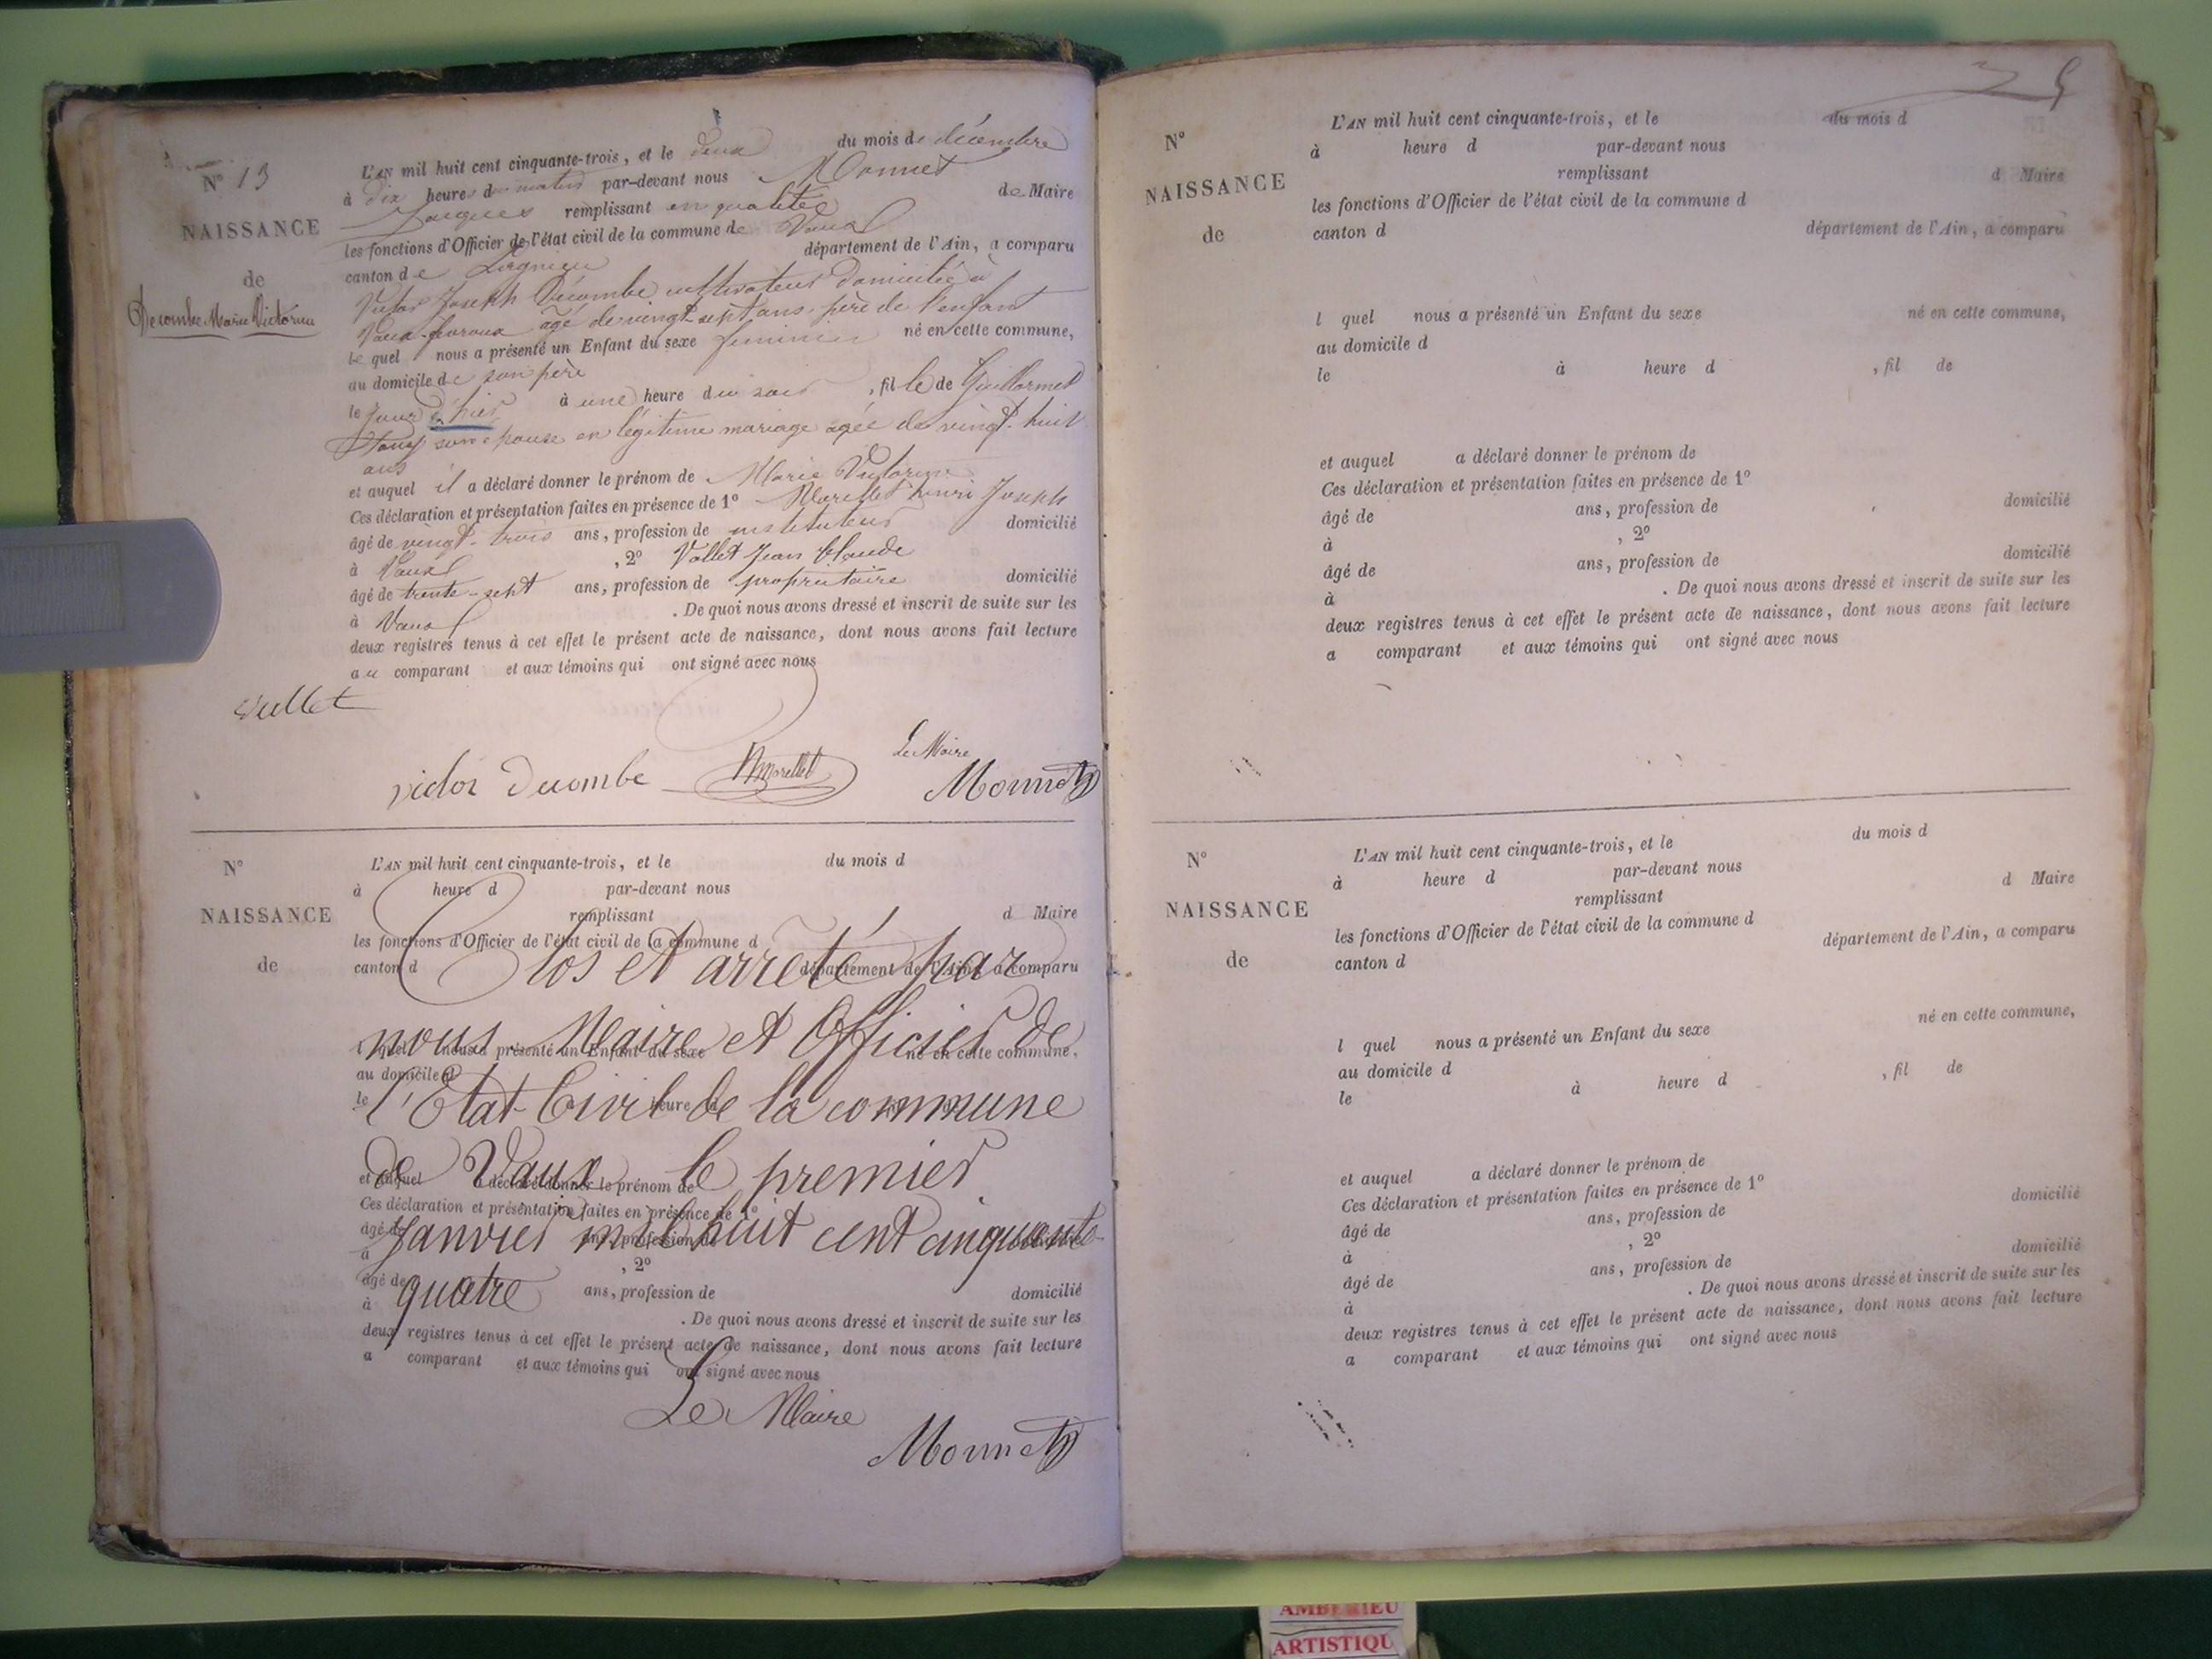 N° 13
NAISSANCE
de
Decombe Marie Victorine
L'AN mil huit cent cinquante-trois, et le deux du mois de décembre
à dix heures du matin par-devant nous Monnet
Jacques remplissant en qualité de Maire
les fonctions d'Officier de l'état civil de la commune de Vaux
canton de Lagnieu département de l'Ain, a comparu
Victor Joseph Décombe cultivateur domicilié à
Vaux âgé de vingt-sept ans, père de l'enfant
lequel nous a présenté un Enfant du sexe féminin né en cette commune,
au domicile de son père
le jour d'hier à une heure du soir, fille de Guillermet
son épouse en légitime mariage âgée de vingt-huit
ans
et auquel il a déclaré donner le prénom de Marie Victorine
Ces déclaration et présentation faites en présence de 1° Morellet henri Joseph
âgé de vingt-trois ans, profession de instituteur domicilié
à Vaux, 2° Vollet Jean Claude
âgé de trente-sept ans, profession de propriétaire domicilié
à Vaux. De quoi nous avons dressé et inscrit de suite sur les
deux registres tenus à cet effet le présent acte de naissance, dont nous avons fait lecture
au comparant et aux témoins qui ont signé avec nous
Vullet
victor Decombe Morellet Le Maire
Monnet
N°
NAISSANCE
de
L'AN mil huit cent cinquante-trois, et le du mois d
à heure d par-devant nous
remplissant d Maire
les fonctions d'Officier de l'état civil de la commune d
canton d département de l'Ain, a comparu
Clos et arrêté par
nous Maire et Officier de
l quel nous a présenté un Enfant du sexe né en cette commune,
au domicile d
le heure
l'Etat-Civil de la commune
de Vaux le premier
et auquel a déclaré donner le prénom de
Ces déclaration et présentation faites en présence de 1°
Janvier mil huit cent cinquante-
âgé de ans, profession de
à , 2°
quatre
âgé de ans, profession de domicilié
à . De quoi nous avons dressé et inscrit de suite sur les
deux registres tenus à cet effet le présent acte de naissance, dont nous avons fait lecture
a comparant et aux témoins qui ont signé avec nous
Le Maire
Monnet
N°
NAISSANCE
de
L'AN mil huit cent cinquante-trois, et le du mois d
à heure d par-devant nous
remplissant d Maire
les fonctions d'Officier de l'état civil de la commune d
canton d département de l'Ain, a comparu
l quel nous a présenté un Enfant du sexe né en cette commune,
au domicile d
le à heure d , fil de
et auquel a déclaré donner le prénom de
Ces déclaration et présentation faites en présence de 1°
âgé de ans, profession de domicilié
à , 2°
âgé de ans, profession de domicilié
à . De quoi nous avons dressé et inscrit de suite sur les
deux registres tenus à cet effet le présent acte de naissance, dont nous avons fait lecture
a comparant et aux témoins qui ont signé avec nous
N°
NAISSANCE
de
L'AN mil huit cent cinquante-trois, et le du mois d
à heure d par-devant nous
remplissant d Maire
les fonctions d'Officier de l'état civil de la commune d
canton d département de l'Ain, a comparu
l quel nous a présenté un Enfant du sexe né en cette commune,
au domicile d
le à heure d , fil de
et auquel a déclaré donner le prénom de
Ces déclaration et présentation faites en présence de 1°
âgé de ans, profession de domicilié
à , 2°
âgé de ans, profession de domicilié
à . De quoi nous avons dressé et inscrit de suite sur les
deux registres tenus à cet effet le présent acte de naissance, dont nous avons fait lecture
a comparant et aux témoins qui ont signé avec nous
AMBERIEU
ARTISTIQU